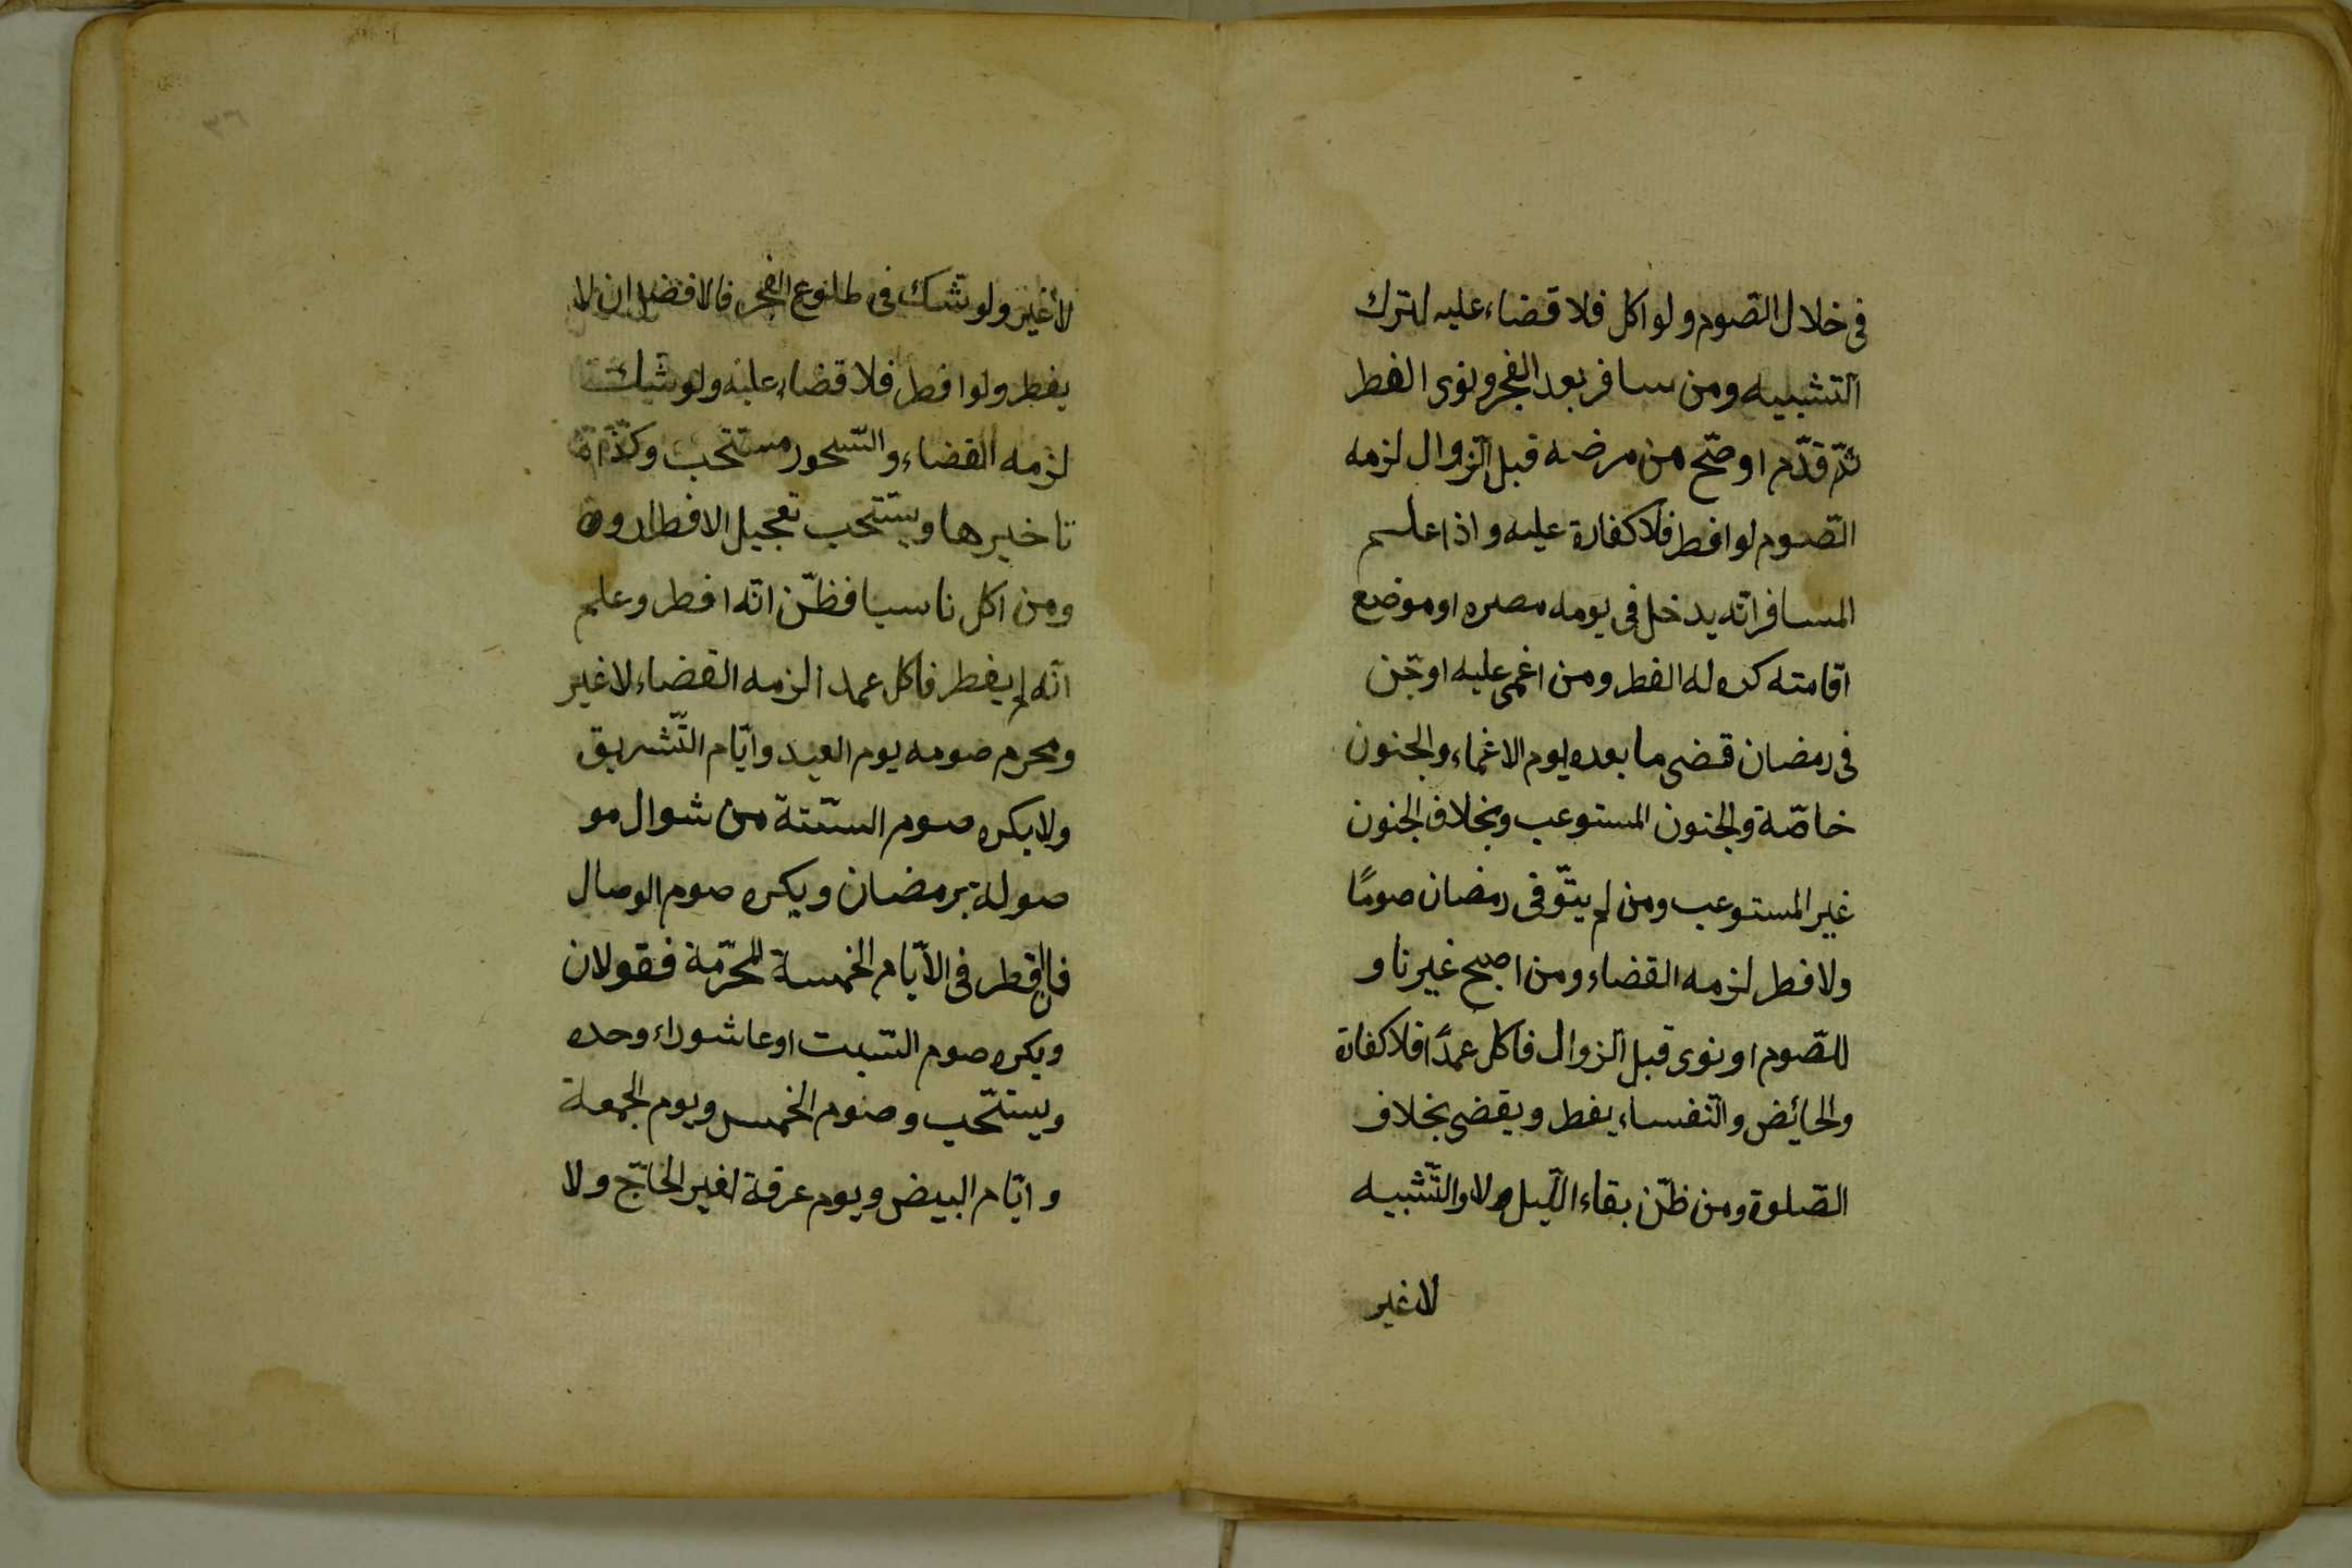 فى خلال الصّوم ولو اكل فلا قضاء عليه لترك
التشبيه ومن سافر بعد الفجر ونوى الفطر
ثمّ قدّم او صحّ من مرضه قبل الزوال لزمه
الصّوم لو افطر فلا كفارة عليه واذا علم
المسافر انّه يدخل فى يومه مصره او موضع
اقامته كره له الفطر ومن اغمى عليه او جنّ
فى رمضان قضى ما بعده يوم الاغماء والجنون
خاصّة والجنون المستوعب وبخلاف الجنون
غير المستوعب ومن لم ينو فى رمضان صومًا
ولا فطر لزمه القضاء ومن اصبح غير ناو
للصّوم او نوى قبل الزوال فاكل عمدًا فلا كفارة
والحائض والنفساء يفطر ويقضى بخلاف
الصّلوة ومن ظنّ بقاء اللّيل ولا والتّشبيه
لا غير
لا غير ولو شك فى طلوع الفجر فالافضل ان لا
يفطر ولو افطر فلا قضاء عليه ولو شك
لزمه القضاء والسّحور مستحب وكذا
تاخيرها ويستحب تعجيل الافطار
ومن اكل ناسيا فظنّ انّه افطر وعلم
انّه لم يفطر فاكل عمدا لزمه القضاء لا غير
ومحرم صومه يوم العيد وايّام التّشريق
ولا يكره صوم الستّة من شوال مو
صولة برمضان ويكره صوم الوصال
فان افطر فى الايّام الخمسة المحرّمة فقولان
ويكره صوم السّبت او عاشوراء وحده
ويستحّب وصوم الخمس ويوم الجمعة
وايّام البيض ويوم عرفة لغير الحاجّ ولا